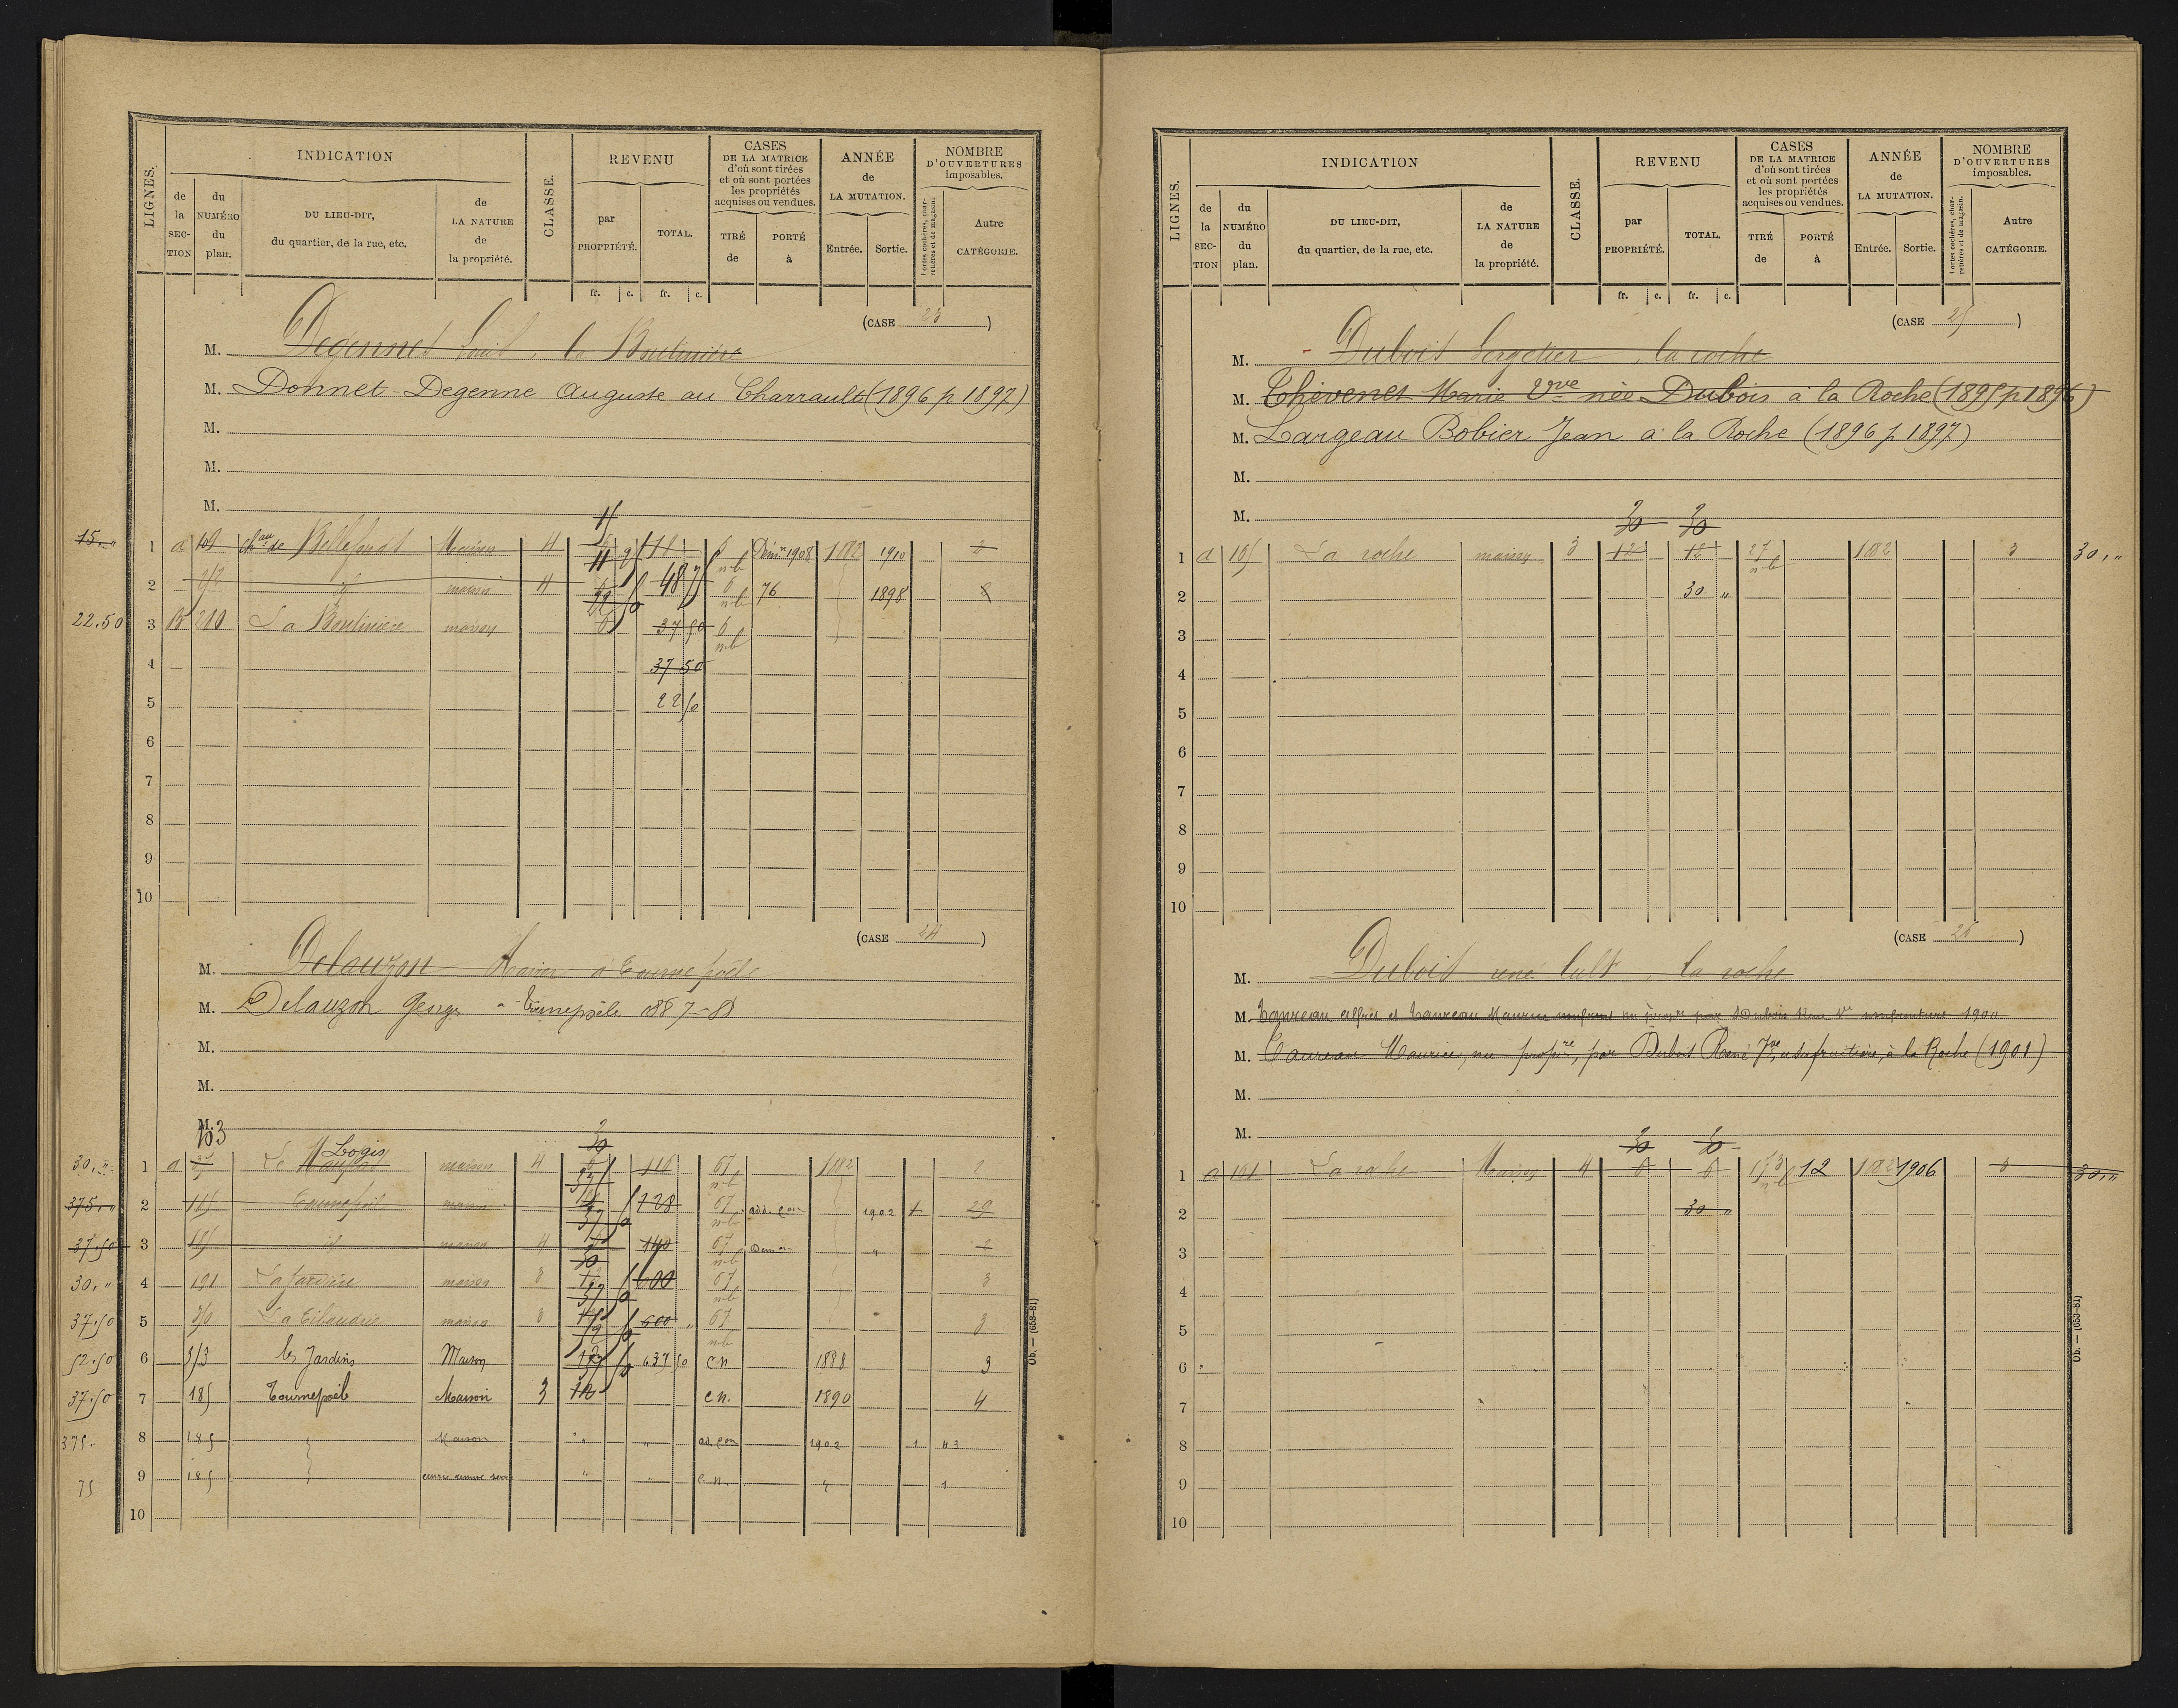 LIGNES.
INDICATION
de la SEC-TION
du NUMÉRO du plan.
DU LIEU-DIT, du quartier, de la rue, etc.
de LA NATURE de la propriété.
CLASSE.
REVENU
par PROPRIÉTÉ.
TOTAL.
fr. c. fr. c.
CASES DE LA MATRICE d'où sont tirées et où sont portées les propriétés acquises ou vendues.
TIRÉ de
PORTÉ à
ANNÉE de LA MUTATION.
Entrée. Sortie.
NOMBRE D'OUVERTURES imposables.
Portes cochères, charretières et de magasin.
Autre CATÉGORIE.
(CASE 23)
M. Degennes
M. Donnet-Degenne Auguste au Charrault (1896 p 1897)
M.
M.
M.
15 "
1 a 109 Chau de Bellefondt Maison 4 Démon 1908 1882 1910 2
2 id maison 4 48 6 76 1898
22.50 3 B 210 La Boulinière maison 37 50 6
4 37 50
5 22 50
6
7
8
9
10
(CASE 24)
M. Delauzon Xavier à Tournepoële
M. Delauzon Georges à Tournepoële 1887-88
M.
M.
M.
103
30, " 1 a Le Logis maison 4 116 67 1882 2
375, " 2 185 Tournepoël maison 128 67 add. con 1902 1 29
37.50 3 185 id maison 4 140 67 Démon " 2
30, " 4 191 La Jardière maison 3 600 67 3
37.50 5 La Tibaudrie maison 3 600 67 3
52.50 6 313 les Jardins Maison 637 50 C.n 1888 3
37.50 7 185 Tournepoël Maison 3 12 C.n. 1890 4
375. 8 185 Maison " " ad. con 1902 1 43
75 9 185 écurie remise serre " " C.n. " 1
10
Ob. — (653-81)
LIGNES.
INDICATION
de la SEC-TION
du NUMÉRO du plan.
DU LIEU-DIT, du quartier, de la rue, etc.
de LA NATURE de la propriété.
CLASSE.
REVENU
par PROPRIÉTÉ.
TOTAL.
fr. c. fr. c.
CASES DE LA MATRICE d'où sont tirées et où sont portées les propriétés acquises ou vendues.
TIRÉ de
PORTÉ à
ANNÉE de LA MUTATION.
Entrée. Sortie.
NOMBRE D'OUVERTURES imposables.
Portes cochères, charretières et de magasin.
Autre CATÉGORIE.
(CASE 25)
M. Dubois la roche
M. Thévenet Marie Vve née Dubois à la Roche (1895 p 1896)
M. Largeau Bobier Jean à la Roche (1896 p 1897)
M.
M.
30 30
1 a 165 La roche maison 3 12 12 27 1882 3 30, "
2 30 "
3
4
5
6
7
8
9
10
(CASE 26)
M. Dubois rené la roche
M. Taureau Alfred et Taureau Maurice par Dubois René Vve usufruitière 1900
M. Taureau Maurice, nu-propre, par Dubois René Vve, usufruitière, à la Roche (1901)
M.
M.
30 30
1 a 161 La roche Maison 4 6 6 12 1882 1906 3 30, "
2 30 "
3
4
5
6
7
8
9
10
Ob. — (653-81)